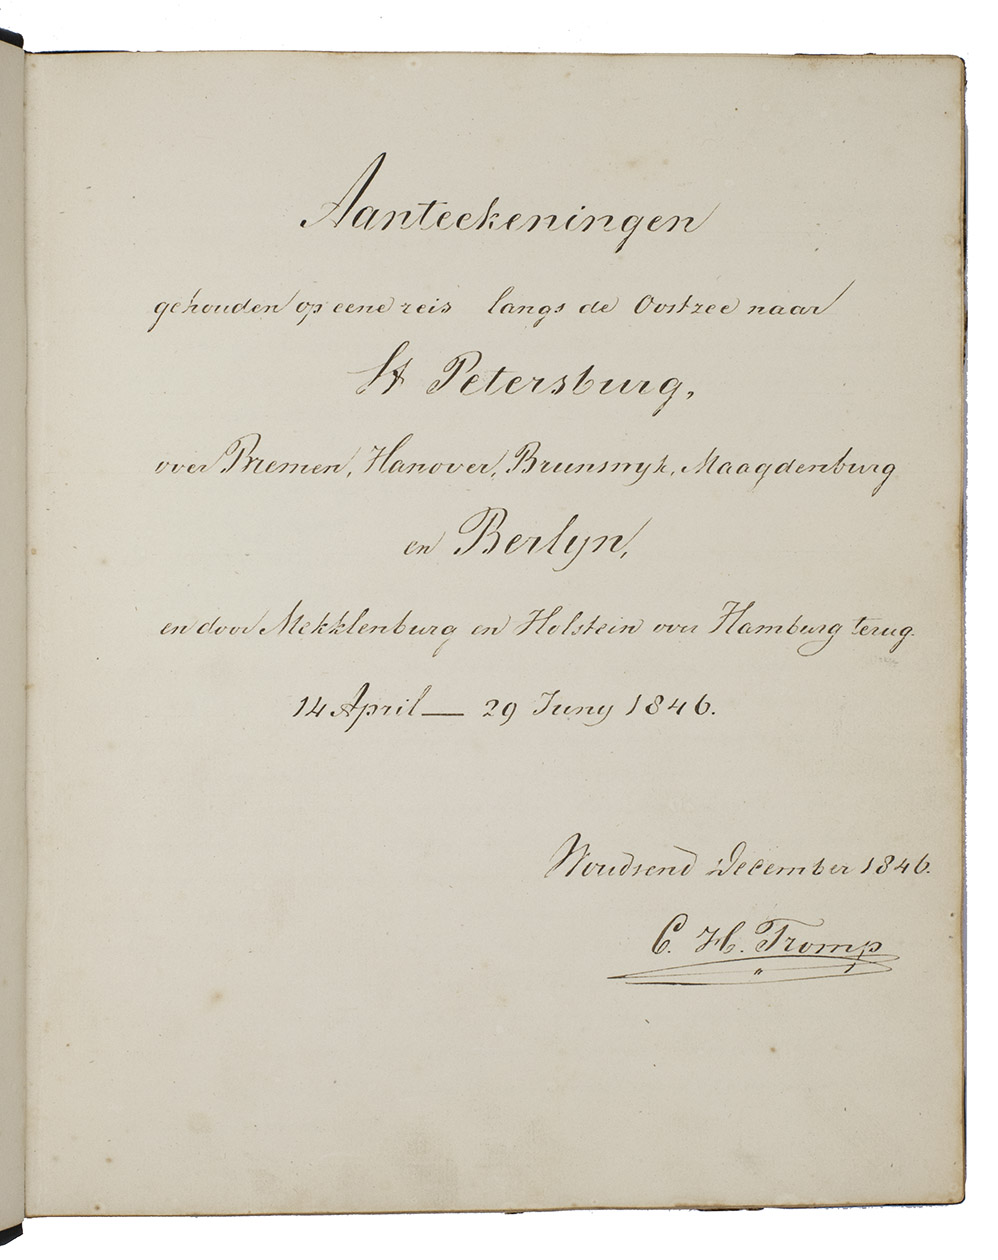 Aanteekeningen
gehouden op eene reis langs de Oostzee naar
St Petersburg,
over Bremen, Hanover, Brunswyk, Maagdenburg
en Berlyn,
en door Mekklenburg en Holstein over Hamburg terug.
14 April — 29 Juny 1846.
Woudsend December 1846.
C. H. Tromp